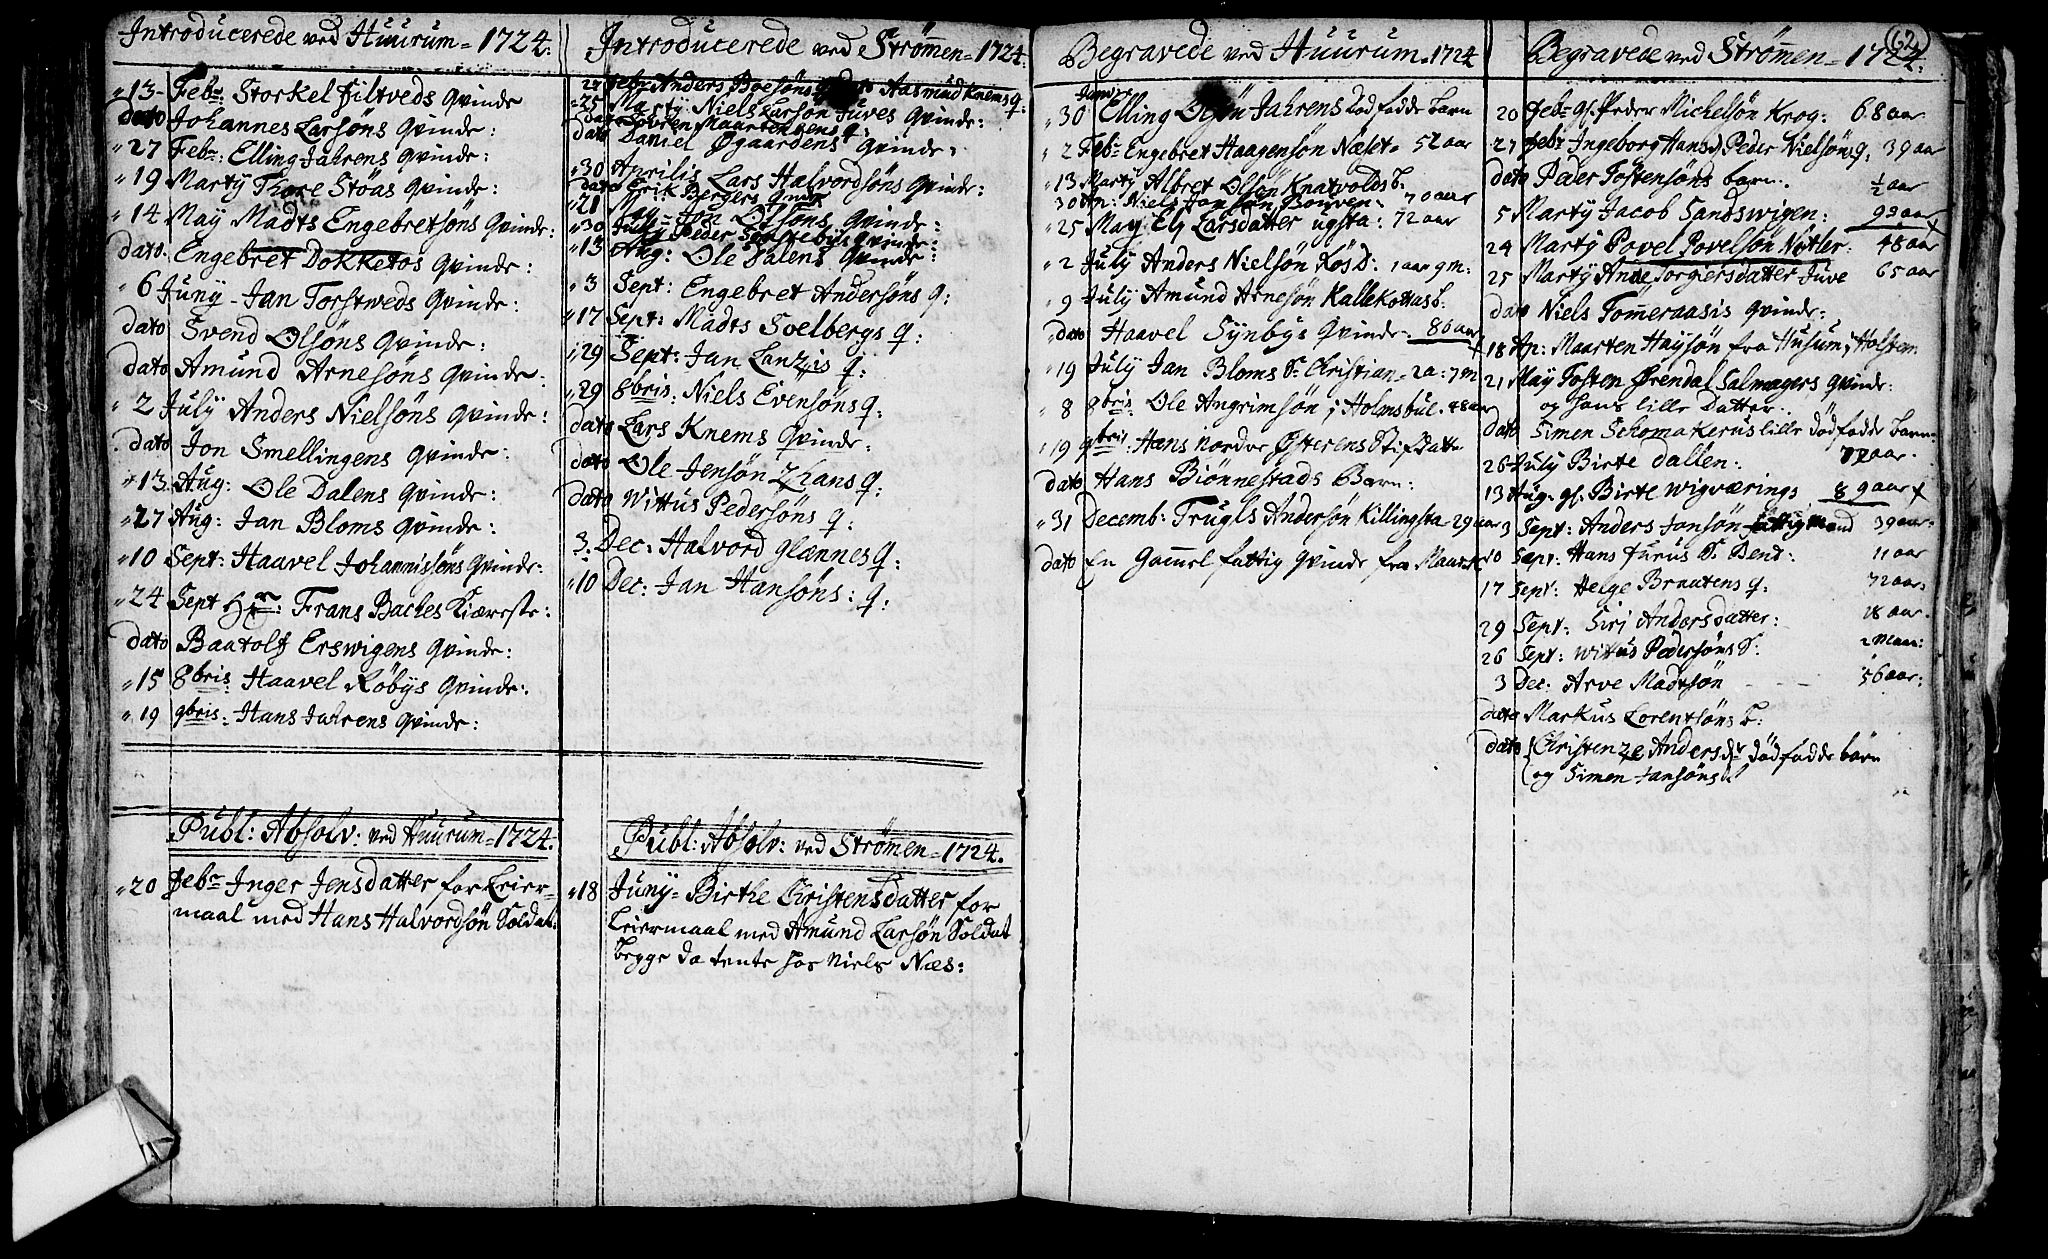 Introducerede ved Huurum = 1724.
13 Febr: Storkel Filtveds Qvinde
dato Johannes Larsøns Qvinde:
27 Febr: Elling Jahrens Qvinde:
19 Marty Thore Stöas Qvinde:
14 May Madts Engebretsøns Qvinde:
dato. Engebret Dokketos Qvinde:
6 Juny - Jan Torstweds Qvinde:
dato Svend Olsøns Qvinde:
dato Amund Arnesøns Qvinde:
2 July Anders Nielsøns Qvinde:
dato Jon Smellingens Qvinde:
13 Aug: Ole Dalens Qvinde:
27 Aug: Jan Bloms Qvinde:
10 Sept: Haavel Johannissøns Qvinde:
24 Sept Hr: Frans Baches Kiæreste:
dato Baatolf Erswigens Qvinde:
15 8bris: Haavel Röbÿs Qvinde:
19 9bris: Hans Jahrens Qvinde:
Publ: Absolv: ved Huurum = 1724.
20 Febr Inger Jensdatter for Leier-
maal med Hans Halvordsøn Soldat:
Introducerede ved Strömen = 1724.
Febr Anders Boesöns Aasmud Knems Q:
25 Marty: Niels Larsøn Juves Qvinde:
dato Daniel Øgaardens Qvinde:
30 Aprilis Lars Halvordsøns Qvinde:
21 May = Jon Olsøns Qvinde:
30 July Peder Qvinde:
13 Aug: Ole Dalens Qvinde:
3 Sept: Engebret Andersøns q:
17 Sept: Madts Svelbergs q:
29 Sept: Jan Lanzis q:
29 8bris: Niels Evensøns q:
dato Lars Knems Qvinde:
dato Ole Jensøn Lhans q:
dato Wittus Pedersøns q:
3. Dec: Halvord Glænnes q:
10 Dec: Jan Hansøns: q:
Publ: Absolv: ved Strömen = 1724.
18 Juny = Birthe Christensdatter for
Leiermaal med Amund Larsøn Soldat
begge da tente hos Niels Næs:
Begravede ved Huurum = 1724
30 Elling Olsøn Jahrens dødfødde barn
2 Febr Engebret Haagensøn Næset = 52 aar
13 Marty Albret Olsøn Knatvolds b.
30 Ap: Niels Jonsøn 70 aar
25 May Els Larsdatter ugsta: 72 aar
2 July Anders Nielsøn Kös D: 1 aar 9 m:
9 July Amund Arnesøn Kallekottas b.
dato Haavel Synbÿs Qvinde. 86 aar
19 July Jan Bloms S. Christian = 2 a: 7 m
8 8bris: Ole Angrimsøn i Holmsbul. 48 aar
19 9bris: Hans Nordre Østerens Stifdatt
dato Hans Biønnestads Barn:
31 Decemb: Trugls Andersøn Killingsta = 29 aar
dato En Gammel fattig Qvinde fra
Begravede ved Strömen = 1724.
62
20 Febr Gl. Peder Michelsøn Krog: 68 aar
27 Febr Ingeborg Hansd Peder Nielsøns q: 39 aar
dato Peder Tostensøns barn. ½ aar
5 Marty Jacob Sandswigen: 93 aar
24 Marty Povel Povelsøn Nøtler. 48 aar
25 Marty Anne Torgiersdatter Juve 65 aar
dato Niels Tomeraasis Qvinde:
18 Ap: Maarten Haysøn fra Husum i Holsten
21 May Tosten Ørendal Salmagers Qvinde:
og hans lille Datter:
dato Simen Schomakerus lille dödfödde barn:
26 July Birte dallen: aar.
13 Aug. gl. Birte Wigværings 89 aar
3 Sept: Anders Jonsøn fattig Mand 39 aar:
10 Sept: Hans Furus S. Bent: 11 aar
17 Sept: Helge Brautens q: 72 aar:
29 Sept: Siri Andersdatter: 28 aar.
26 Sept: Wittus Pedersøns S: 2 Maan:
3 Dec: Arve Madtsøn - - - 56 aar:
dato Markus Lorentsøns b:
dato Christenze Andersdr dödfödde börn
og Simen Jansøns